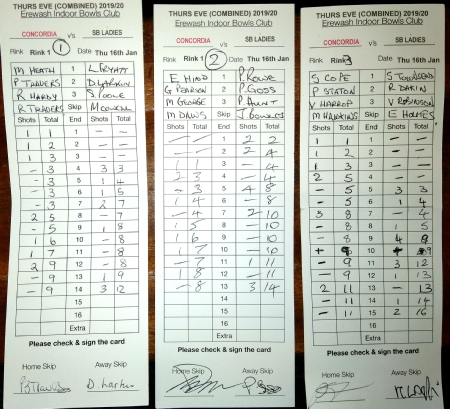 THURS EVE (COMBINED) 2019/20
Erewash Indoor Bowls Club
CONCORDIA v's SB LADIES
Rink Rink 1 1 Date Thu 16th Jan
M HEATH 1
P TRAVERS 2 D LARKIN
R HARDY 3 S POOLE
R TRAVERS Skip
Shots Total End Shots Total
1 1 1 — —
1 2 2 — —
1 3 3 — —
- 3 4 3 3
- 3 5 1 4
- 3 6 1 5
- 3 7 2 7
2 5 8 - 7
- 5 9 1 8
1 6 10 - 8
1 7 11 - 8
2 9 12 - 8
- 9 13 1 9
- 9 14 3 12
15
16
Extra
Please check & sign the card
Home Skip Away Skip
D. Larkin
THURS EVE (COMBINED) 2019/20
Erewash Indoor Bowls Club
CONCORDIA v's SB LADIES
Rink Rink 2 Date Thu 16th Jan
E HIND 1 P. ROWE
G PEARSON 2 P. GOSS
M GEORGE 3
M DAWS Skip J BOWLERS
Shots Total End Shots Total
— — 1 2 2
— — 2 2 4
1 1 3 — 4
2 3 4 — 4
- 3 5 4 8
1 4 6 - 8
- 4 7 2 10
1 5 8 - 10
1 6 9 - 10
1 7 10 - 10
- 7 11 1 11
1 8 12 - 11
- 8 13 3 14
14
15
16
Extra
Please check & sign the card
Home Skip Away Skip
THURS EVE (COMBINED) 2019/20
Erewash Indoor Bowls Club
CONCORDIA v's SB LADIES
Rink Rink 3 Date Thu 16th Jan
S COPE 1
P STATON 2 R DAKIN
V HARROP 3 V ROBINSON
M HAWKINS Skip E HOLMES
Shots Total End Shots Total
1 1 1 — —
1 2 2 — —
1 3 3 — —
2 5 4 — —
- 5 5 3 3
- 5 6 1 4
3 8 7 - 4
- 8 8 1 5
- 8 9 4 9
10
- 9 11 3 12
- 9 12 1 13
2 11 13 - 13
- 11 14 1 14
- 11 15 2 16
16
Extra
Please check & sign the card
Home Skip Away Skip